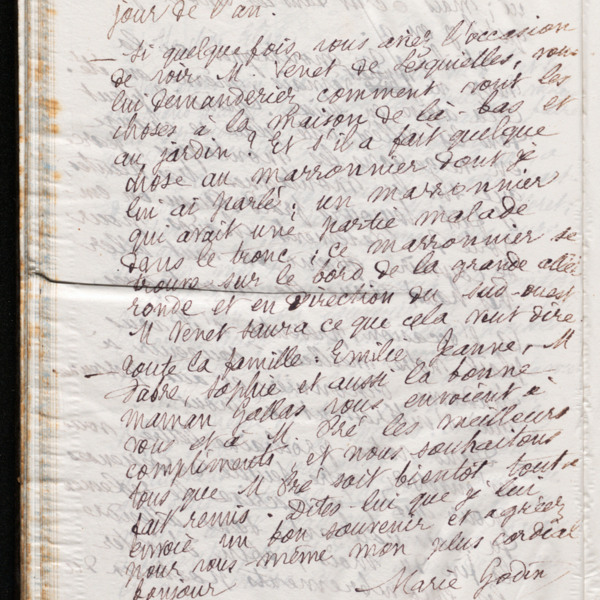 jour de l'an.
— Si quelquefois vous aviez l'occasion
de voir M. Venet de Lesquielles, vous
lui demanderiez comment vont les
choses à la maison de là-bas et
au jardin? Et s'il a fait quelque
chose au marronnier dont je
lui ai parlé; un marronnier
qui avait une partie malade
dans le tronc; ce marronnier se
trouve sur le bord de la grande allée
ronde et en direction du sud-ouest
M Venet saura ce que cela veut dire.
— Toute la famille: Emilie, Jeanne, M
Fabre, Sophie et aussi la bonne
maman Gallas vous envoient à
vous et à M. Pré les meilleurs
compliments et nous souhaitons
tous que M Pré soit bientôt tout à
fait remis. Dites-lui que je lui
envoie un bon souvenir et agréez
pour vous même mon plus cordial
bonjour
Marie Godin